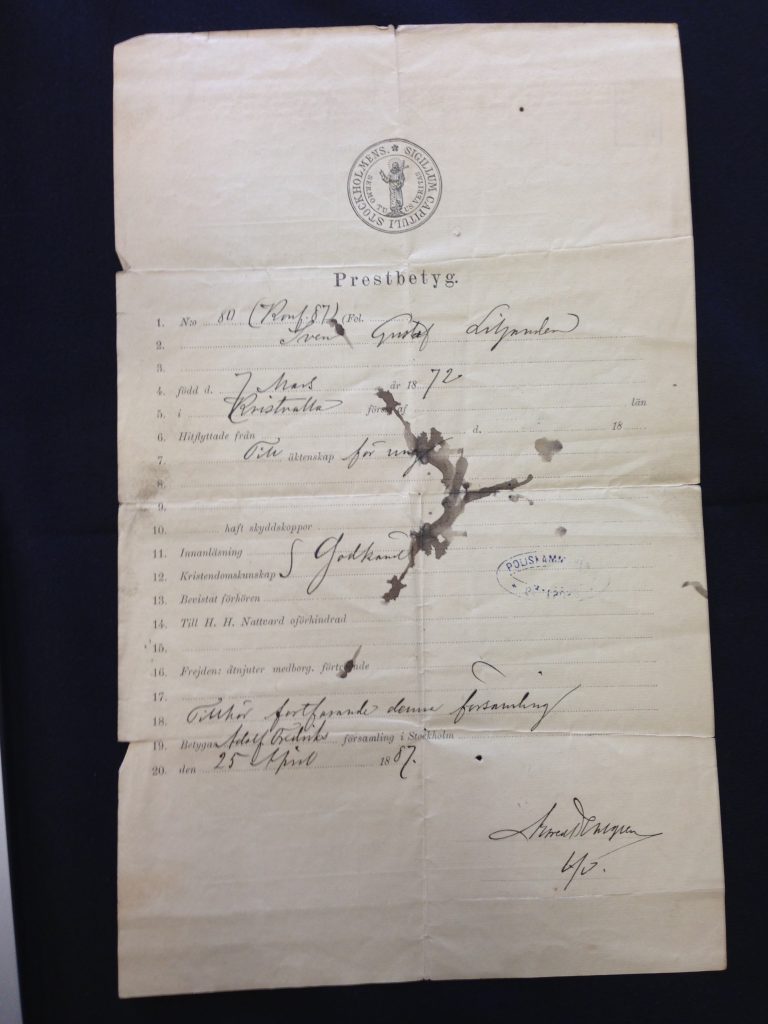 SIGILLUM CAPITULI STOCKHOLMENS.
Prestbetyg.
1. N:o 80 (Konf. 87) (Fol.
2. Sven Gustaf
3.
4. född d. 7 Mars år 1872
5. i Kristvalla län
6. Hitflyttade från d. 18
7. Till äktenskap för ung
8.
9.
10. haft skyddskoppor
11. Innanläsning
12. Kristendomskunskap } Godkänd
13. Bevistat förhören
14. Till H. H. Nattvard oförhindrad
15.
16. Frejden: åtnjuter medborg.
17.
18. Tillhör fortfarande denna församling
19. Betygar Adolf Fredriks församling i Stockholm
20. den 25 April 1887.